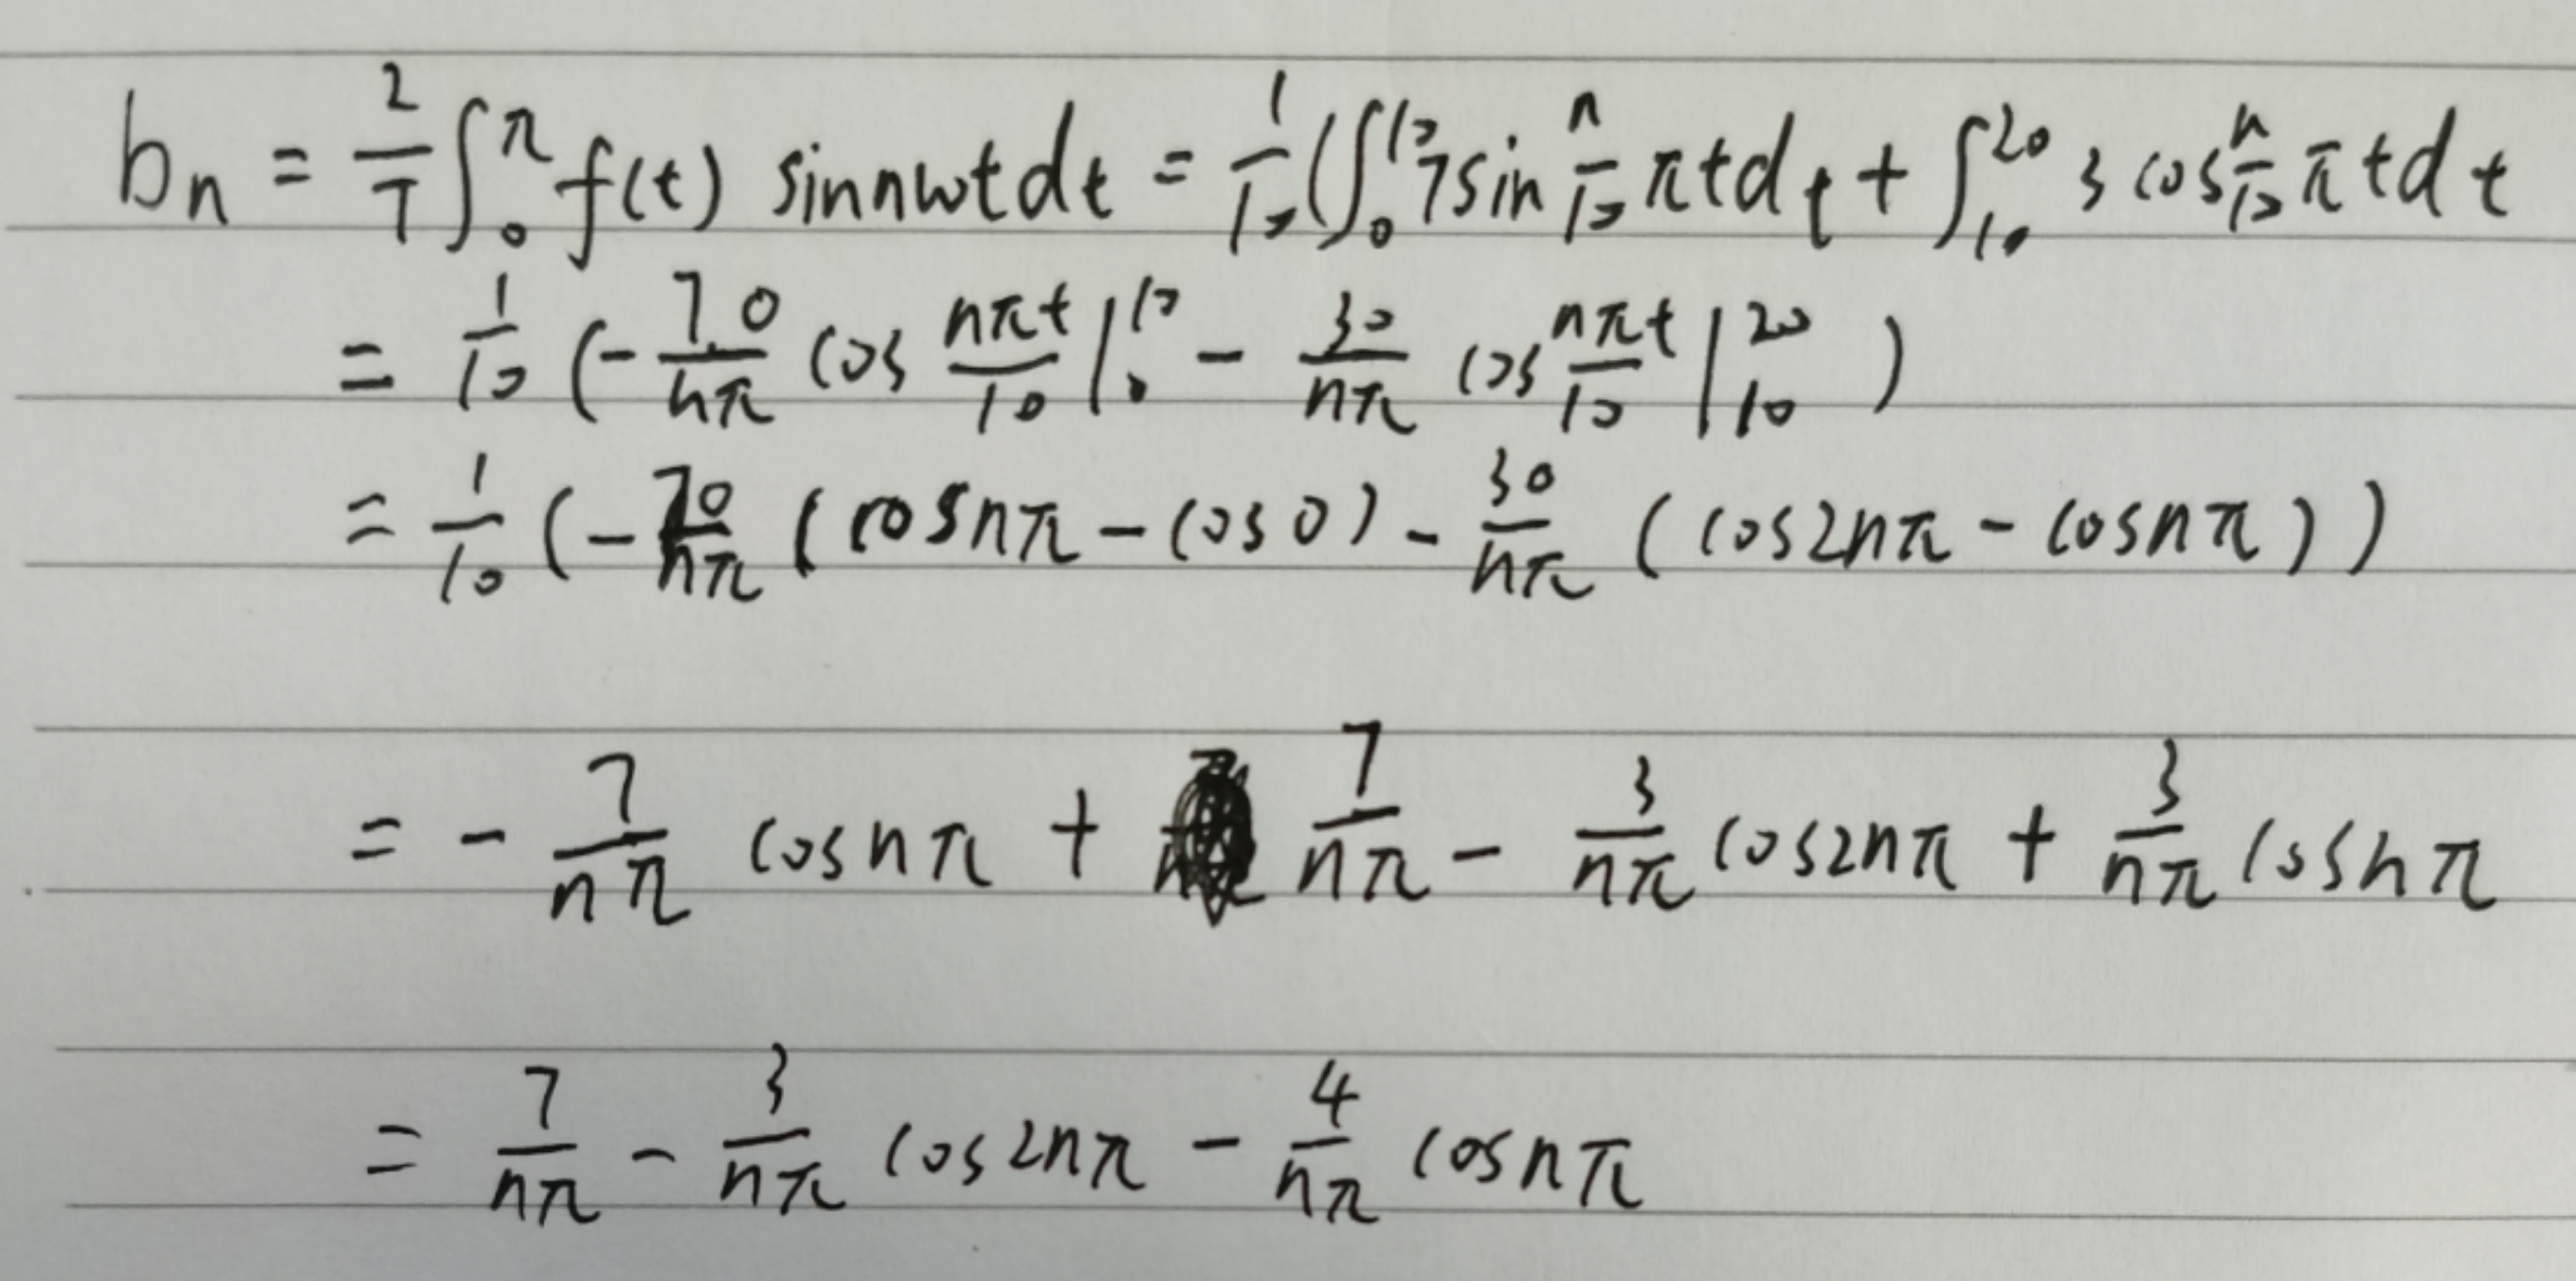 bn = 2/T ∫₀^π f(t) sin nωt dt = 1/10 (∫₀^10 7 sin n/10 πt dt + ∫₁₀^20 3 cos n/10 πt dt
= 1/10 (- 70/nπ cos nπt/10 |₀^10 - 30/nπ cos nπt/10 |₁₀^20 )
= 1/10 (- 70/nπ (cos nπ - cos 0) - 30/nπ (cos 2nπ - cos nπ))
= - 7/nπ cos nπ + 7/nπ - 3/nπ cos 2nπ + 3/nπ cos nπ
= 7/nπ - 3/nπ cos 2nπ - 4/nπ cos nπ